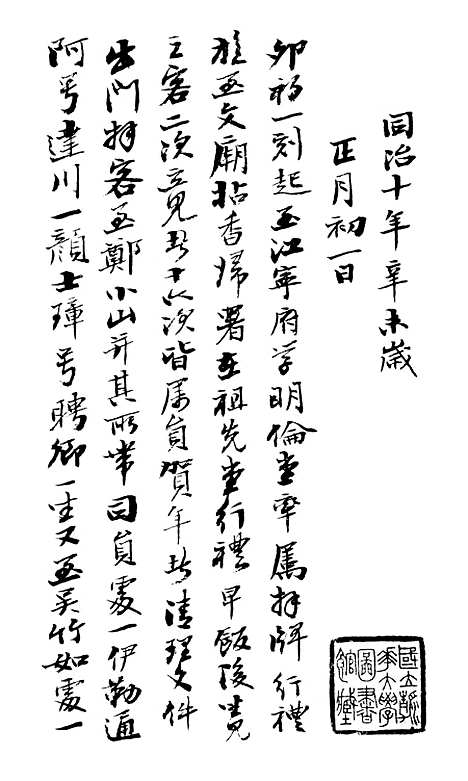 同治十年辛未歲
正月初一日
卯初一刻起至江寧府学明倫堂率属拜牌行禮
旋至文廟拈香歸署在祖先堂行禮早飯後見
之客二次立見者十六次皆属員賀年者清理文件
出門拜客至鄭小山并其所帶司員處一伊勒通
阿号達川一顏士璋号聘卿一坐又至吳竹如處一
國立清華大學圖書館藏